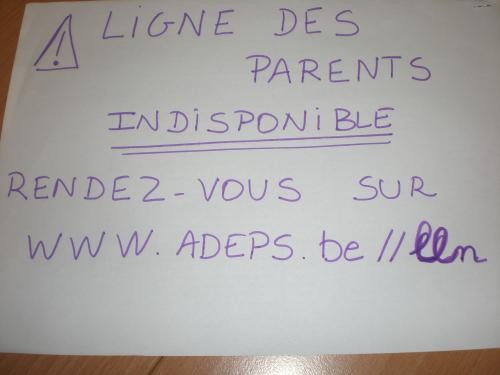 ! LIGNE DES
PARENTS
INDISPONIBLE
RENDEZ-VOUS SUR
WWW.ADEPS.be//lln